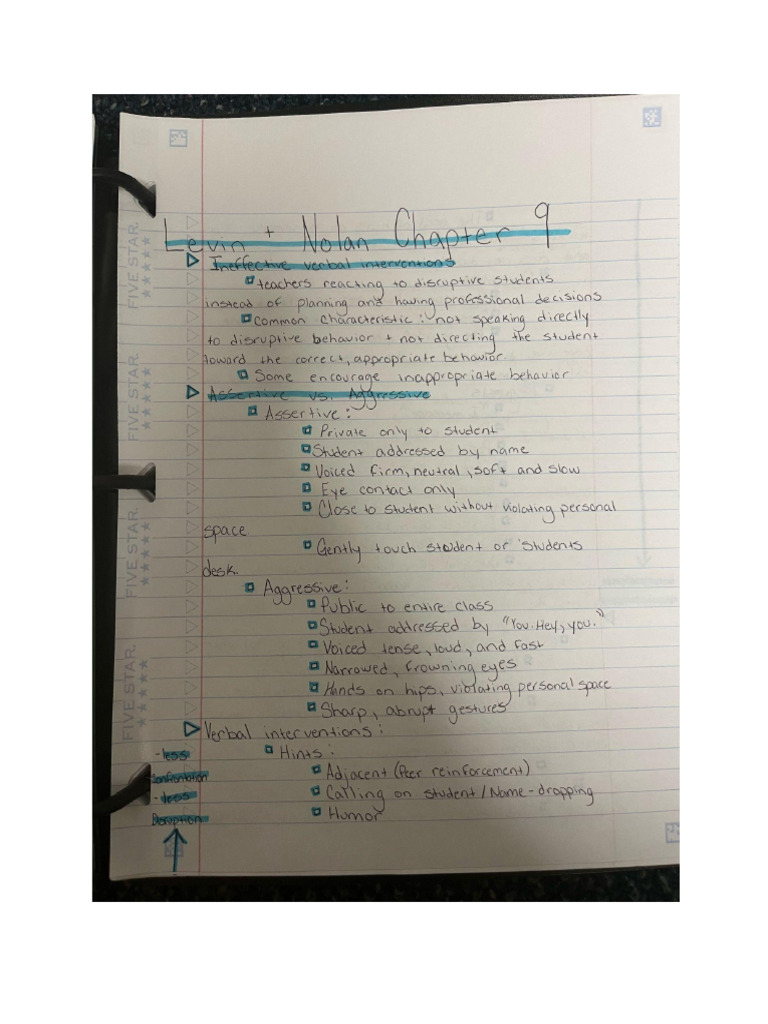 Levin + Nolan Chapter 9
Ineffective verbal interventions
teachers reacting to disruptive students
instead of planning and having professional decisions
common characteristic: not speaking directly
to disruptive behavior + not directing the student
toward the correct, appropriate behavior.
Some encourage inappropriate behavior
Assertive vs. Aggressive
Assertive:
Private only to student
Student addressed by name
Voiced firm, neutral, soft and slow
Eye contact only
Close to student without violating personal
space.
Gently touch student or students
desk.
Aggressive:
Public to entire class
Student addressed by "You. Hey, you."
Voiced tense, loud, and fast
Narrowed, frowning eyes
Hands on hips, violating personal space
Sharp, abrupt gestures
Verbal interventions:
Hints:
Adjacent (Peer reinforcement)
Calling on student/Name-dropping
Humor
-less
Confrontation
-less
Disruption
FIVE STAR.
FIVE STAR.
FIVE STAR.
FIVE STAR.